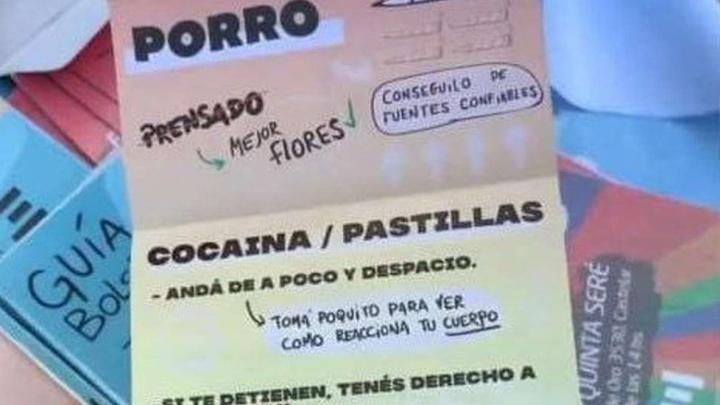 PORRO
PRENSADO
MEJOR
FLORES
CONSEGUILO DE
FUENTES CONFIABLES
COCAINA / PASTILLAS
- ANDÁ DE A POCO Y DESPACIO.
TOMÁ POQUITO PARA VER
COMO REACCIONA TU CUERPO
SI TE DETIENEN, TENÉS DERECHO A
GUÍA
QUINTA SERÉ
Oro 3530, Castelar